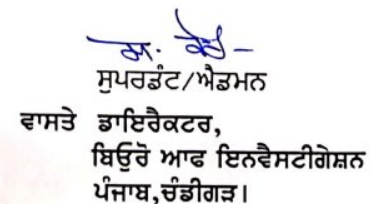 ਸੁਪਰਡੰਟ/ਐਡਮਨ
ਵਾਸਤੇ ਡਾਇਰੈਕਟਰ,
ਬਿਊਰੋ ਆਫ ਇਨਵੈਸਟੀਗੇਸ਼ਨ
ਪੰਜਾਬ,ਚੰਡੀਗੜ।